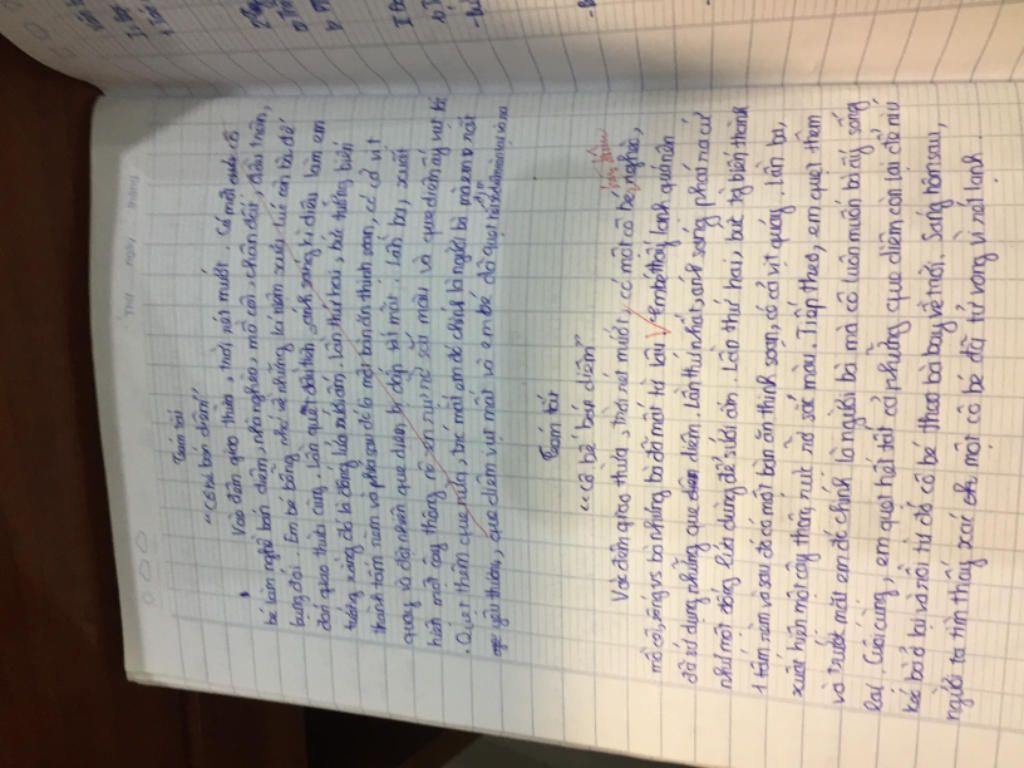 Tóm tắt
"Cô bé bán diêm"
Vào đêm giao thừa, trời rét mướt. Có một cô
bé làm nghề bán diêm, nhà nghèo, mồ côi, chân đất, đầu trần,
bụng đói. Em bé bỗng nhớ về những kỉ niệm xưa lúc còn bà để
đón giao thừa cùng. Lần quẹt đầu tiên, ánh sáng kì diệu làm em
tưởng rằng đó là đống lửa sưởi ấm. Lần thứ hai, bức tường biến
thành tấm rèm và phía sau đó là một bàn ăn thịnh soạn, có cả vịt
quay và đột nhiên que diêm bị dập tắt mất. Lần ba, xuất
hiện một cây thông nô en rực rỡ sắc màu và que diêm ấy vụt tắt
. Quẹt thêm que nữa, trước mắt em đó chính là người bà mà em rất
yêu thương, que diêm vụt mất và em bé đã quẹt hết
Tóm tắt
"Cô bé bán diêm"
Vào đêm giao thừa, trời rét mướt, có một cô bé nghèo,
mồ côi, sống vs bố nhưng bà đã mất từ lâu em bé thấy lạnh quá nên
đã sử dụng những que diêm. Lần thứ nhất, ánh sáng phát ra cứ
như một đống lửa dùng để sưởi ấm. Lần thứ hai, bức tg biến thành
1 tấm rèm và sau đó có một bàn ăn thịnh soạn, có cả vịt quay. Lần ba,
xuất hiện một cây thông rực rỡ sắc màu. Tiếp theo, em quẹt thêm
và trước mắt em đó chính là người bà mà cô luôn muốn bà ấy sống
lại. Cuối cùng, em quẹt hết tất cả những que diêm còn lại để níu
kéo bà ở lại và rồi từ đó cô bé theo bà bay về trời. Sáng hôm sau,
người ta tìm thấy xác một cô bé đã tử vong vì rét lạnh.